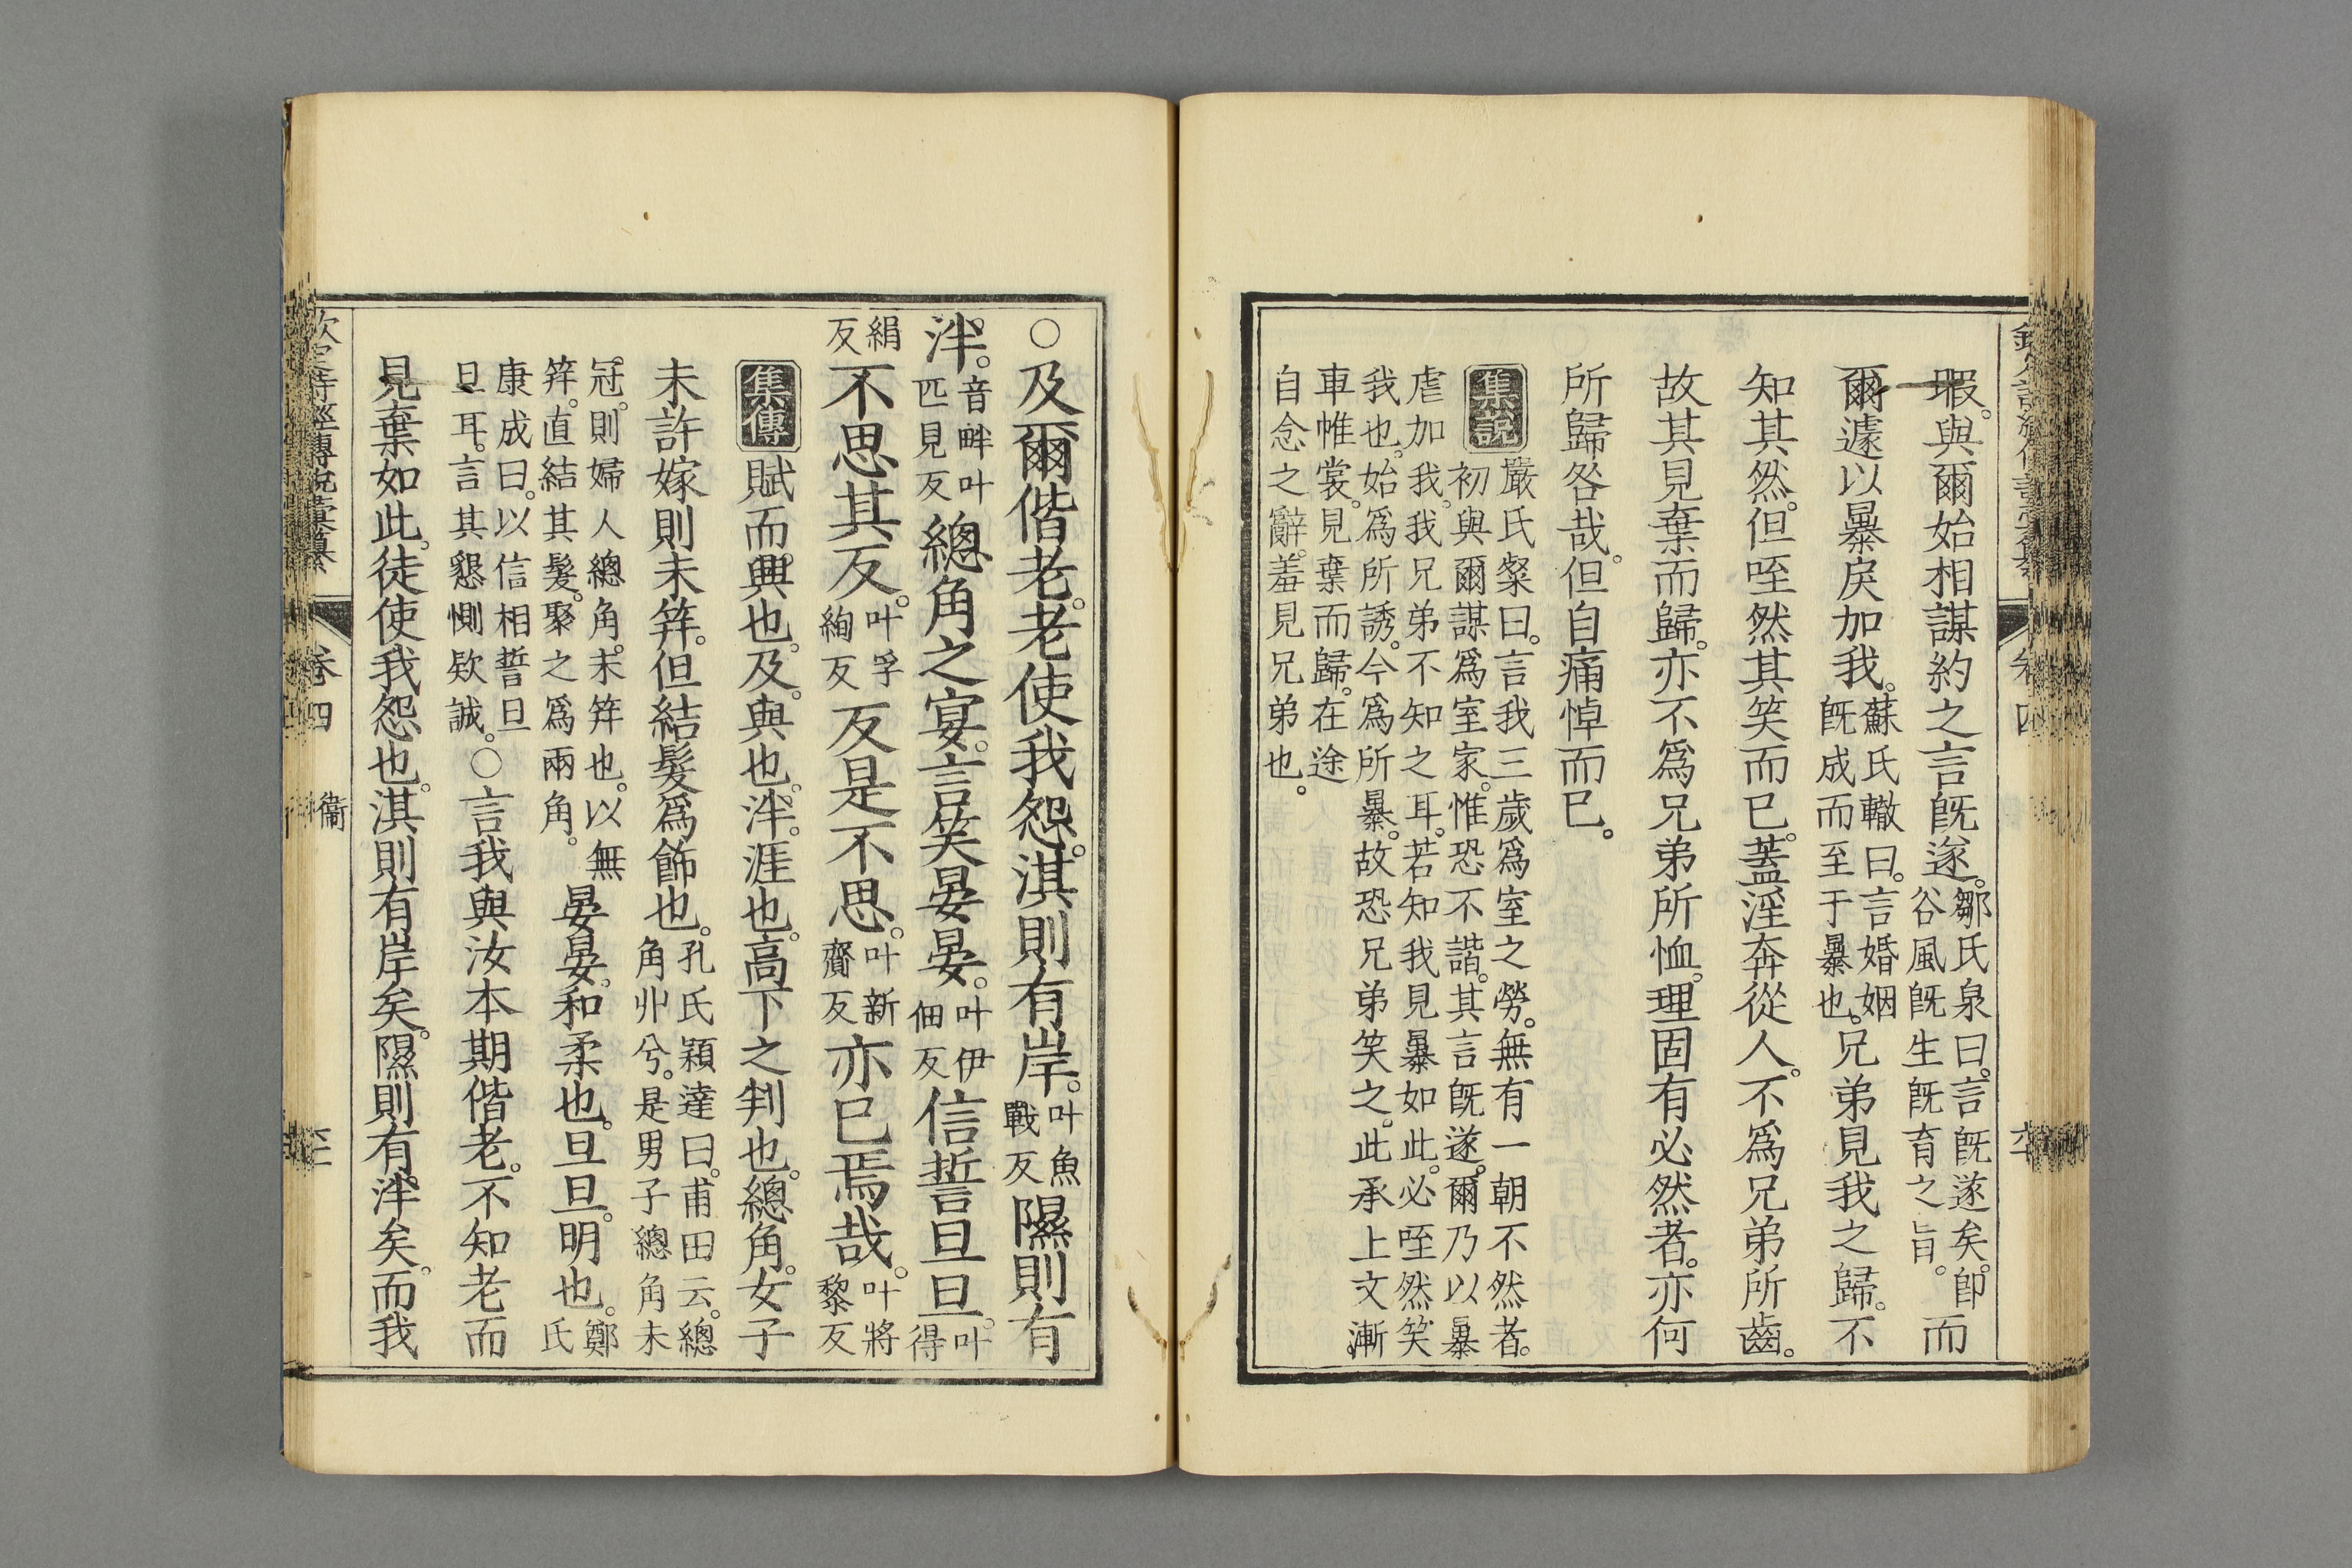 暇。與爾始相謀約之言既遂。鄒氏泉曰。言既遂矣。卽谷風既生既育之旨。而
爾遽以暴戾加我。蘇氏轍曰。言婚姻既成而至于暴也。兄弟見我之歸。不
知其然。但咥然其笑而已。蓋淫奔從人。不爲兄弟所齒。
故其見棄而歸。亦不爲兄弟所恤。理固有必然者。亦何
所歸咎哉。但自痛悼而已。
集說
嚴氏粲曰。言我三歲爲室之勞。無有一朝不然者。
初與爾謀爲室家。惟恐不諧。其言既遂。爾乃以暴
虐加我。我兄弟不知之耳。若知我見暴如此。必咥然笑
我也。始爲所誘。今爲所暴。故恐兄弟笑之。此承上文漸
車帷裳。見棄而歸。在途
自念之辭。羞見兄弟也。
○及爾偕老。老使我怨。淇則有岸。叶魚戰反隰則有
泮。音畔叶匹見反總角之宴。言笑晏晏。叶伊佃反信誓旦旦。叶得
絹反不思其反。叶孚絢反反是不思。叶新齎反亦已焉哉。叶將黎反
集傳賦而興也。及。與也。泮。涯也。高下之判也。總角。女子
未許嫁則未笄。但結髮爲飾也。孔氏穎達曰。甫田云。總角丱兮。是男子總角未
冠。則婦人總角。未笄也。以無笄。直結其髮。聚之爲兩角。晏晏。和柔也。旦旦。明也。鄭氏
康成曰。以信相誓旦旦耳。言其懇惻欵誠。○言我與汝本期偕老。不知老而
見棄如此。徒使我怨也。淇則有岸矣。隰則有泮矣。而我
欽定詩經傳說彙纂 卷四 衞